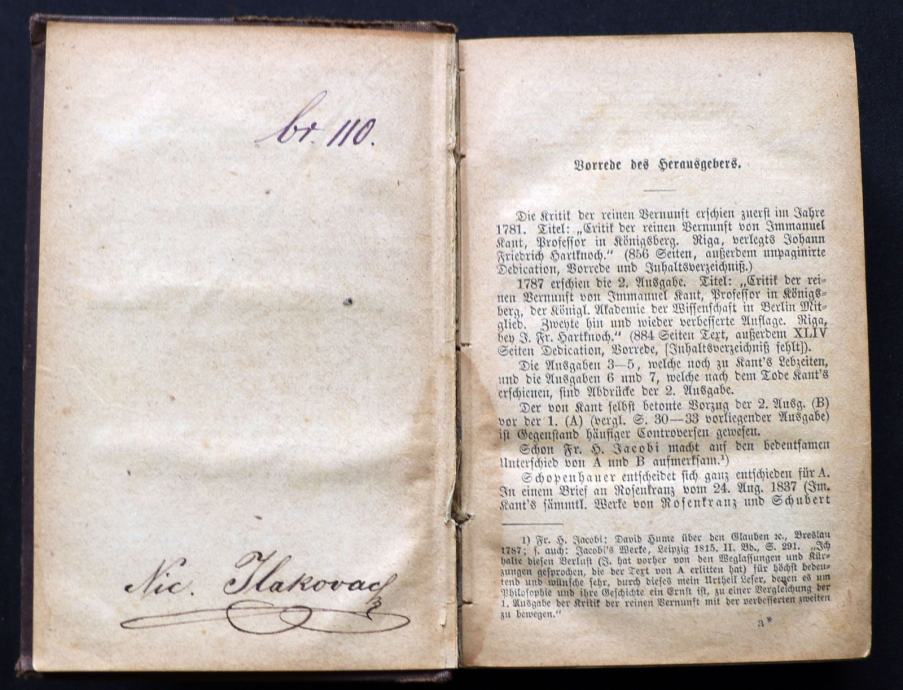 br. 110.
Nic. Ilakovac
Vorrede des Herausgebers.
Die Kritik der reinen Vernunft erschien zuerst im Jahre
1781. Titel: „Critik der reinen Vernunft von Immanuel
Kant, Professor in Königsberg. Riga, verlegts Johann
Friedrich Hartknoch.“ (856 Seiten, außerdem unpaginirte
Dedication, Vorrede und Inhaltsverzeichniß.)
1787 erschien die 2. Ausgabe. Titel: „Critik der rei-
nen Vernunft von Immanuel Kant, Professor in Königs-
berg, der Königl. Akademie der Wissenschaft in Berlin Mit-
glied. Zweyte hin und wieder verbesserte Auflage. Riga,
bey J. Fr. Hartknoch.“ (884 Seiten Text, außerdem XLIV
Seiten Dedication, Vorrede, [Inhaltsverzeichniß fehlt]).
Die Ausgaben 3—5, welche noch zu Kant's Lebzeiten,
und die Ausgaben 6 und 7, welche nach dem Tode Kant's
erschienen, sind Abdrücke der 2. Ausgabe.
Der von Kant selbst betonte Vorzug der 2. Ausg. (B)
vor der 1. (A) (vergl. S. 30—33 vorliegender Ausgabe)
ist Gegenstand häufiger Controversen gewesen.
Schon Fr. H. Jacobi macht auf den bedeutsamen
Unterschied von A und B aufmerksam.¹)
Schopenhauer entscheidet sich ganz entschieden für A.
In einem Brief an Rosenkranz vom 24. Aug. 1837 (Im.
Kant's sämmtl. Werke von Rosenkranz und Schubert
1) Fr. H. Jacobi: David Hume über den Glauben ꝛc., Breslau
1787; s. auch: Jacobi's Werke, Leipzig 1815. II. Bd., S. 291. „Ich
halte diesen Verlust (J. hat vorher von den Weglassungen und Kür-
zungen gesprochen, die der Text von A erlitten hat) für höchst bedeu-
tend und wünsche sehr, durch dieses mein Urtheil Leser, denen es um
Philosophie und ihre Geschichte ein Ernst ist, zu einer Vergleichung der
1. Ausgabe der Kritik der reinen Vernunft mit der verbesserten zweiten
zu bewegen.“
a*